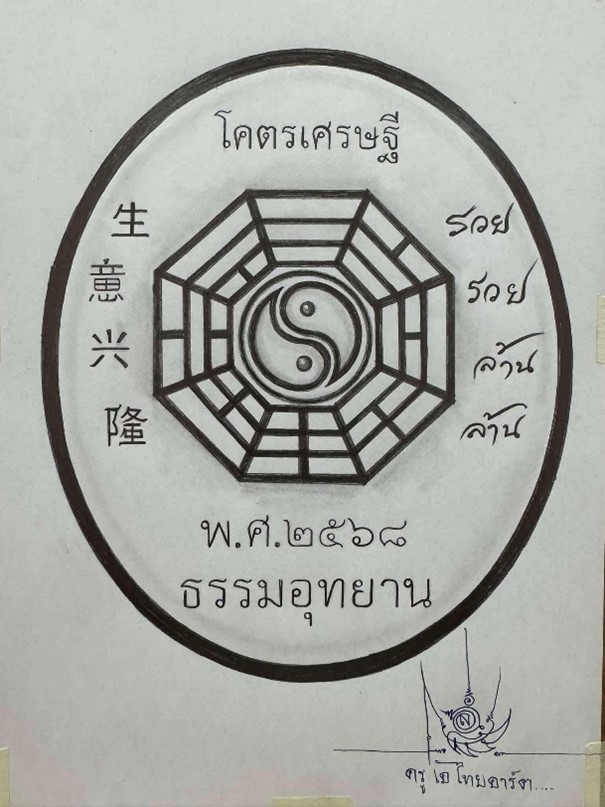 โคตรเศรษฐี
生
意
兴
隆
รวย
รวย
ล้าน
ล้าน
พ.ศ.๒๕๖๘
ธรรมอุทยาน
ครู เอ๋ ไทยอาร์ต....